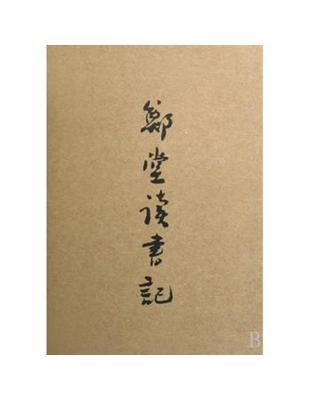 鄭堂讀書記
B